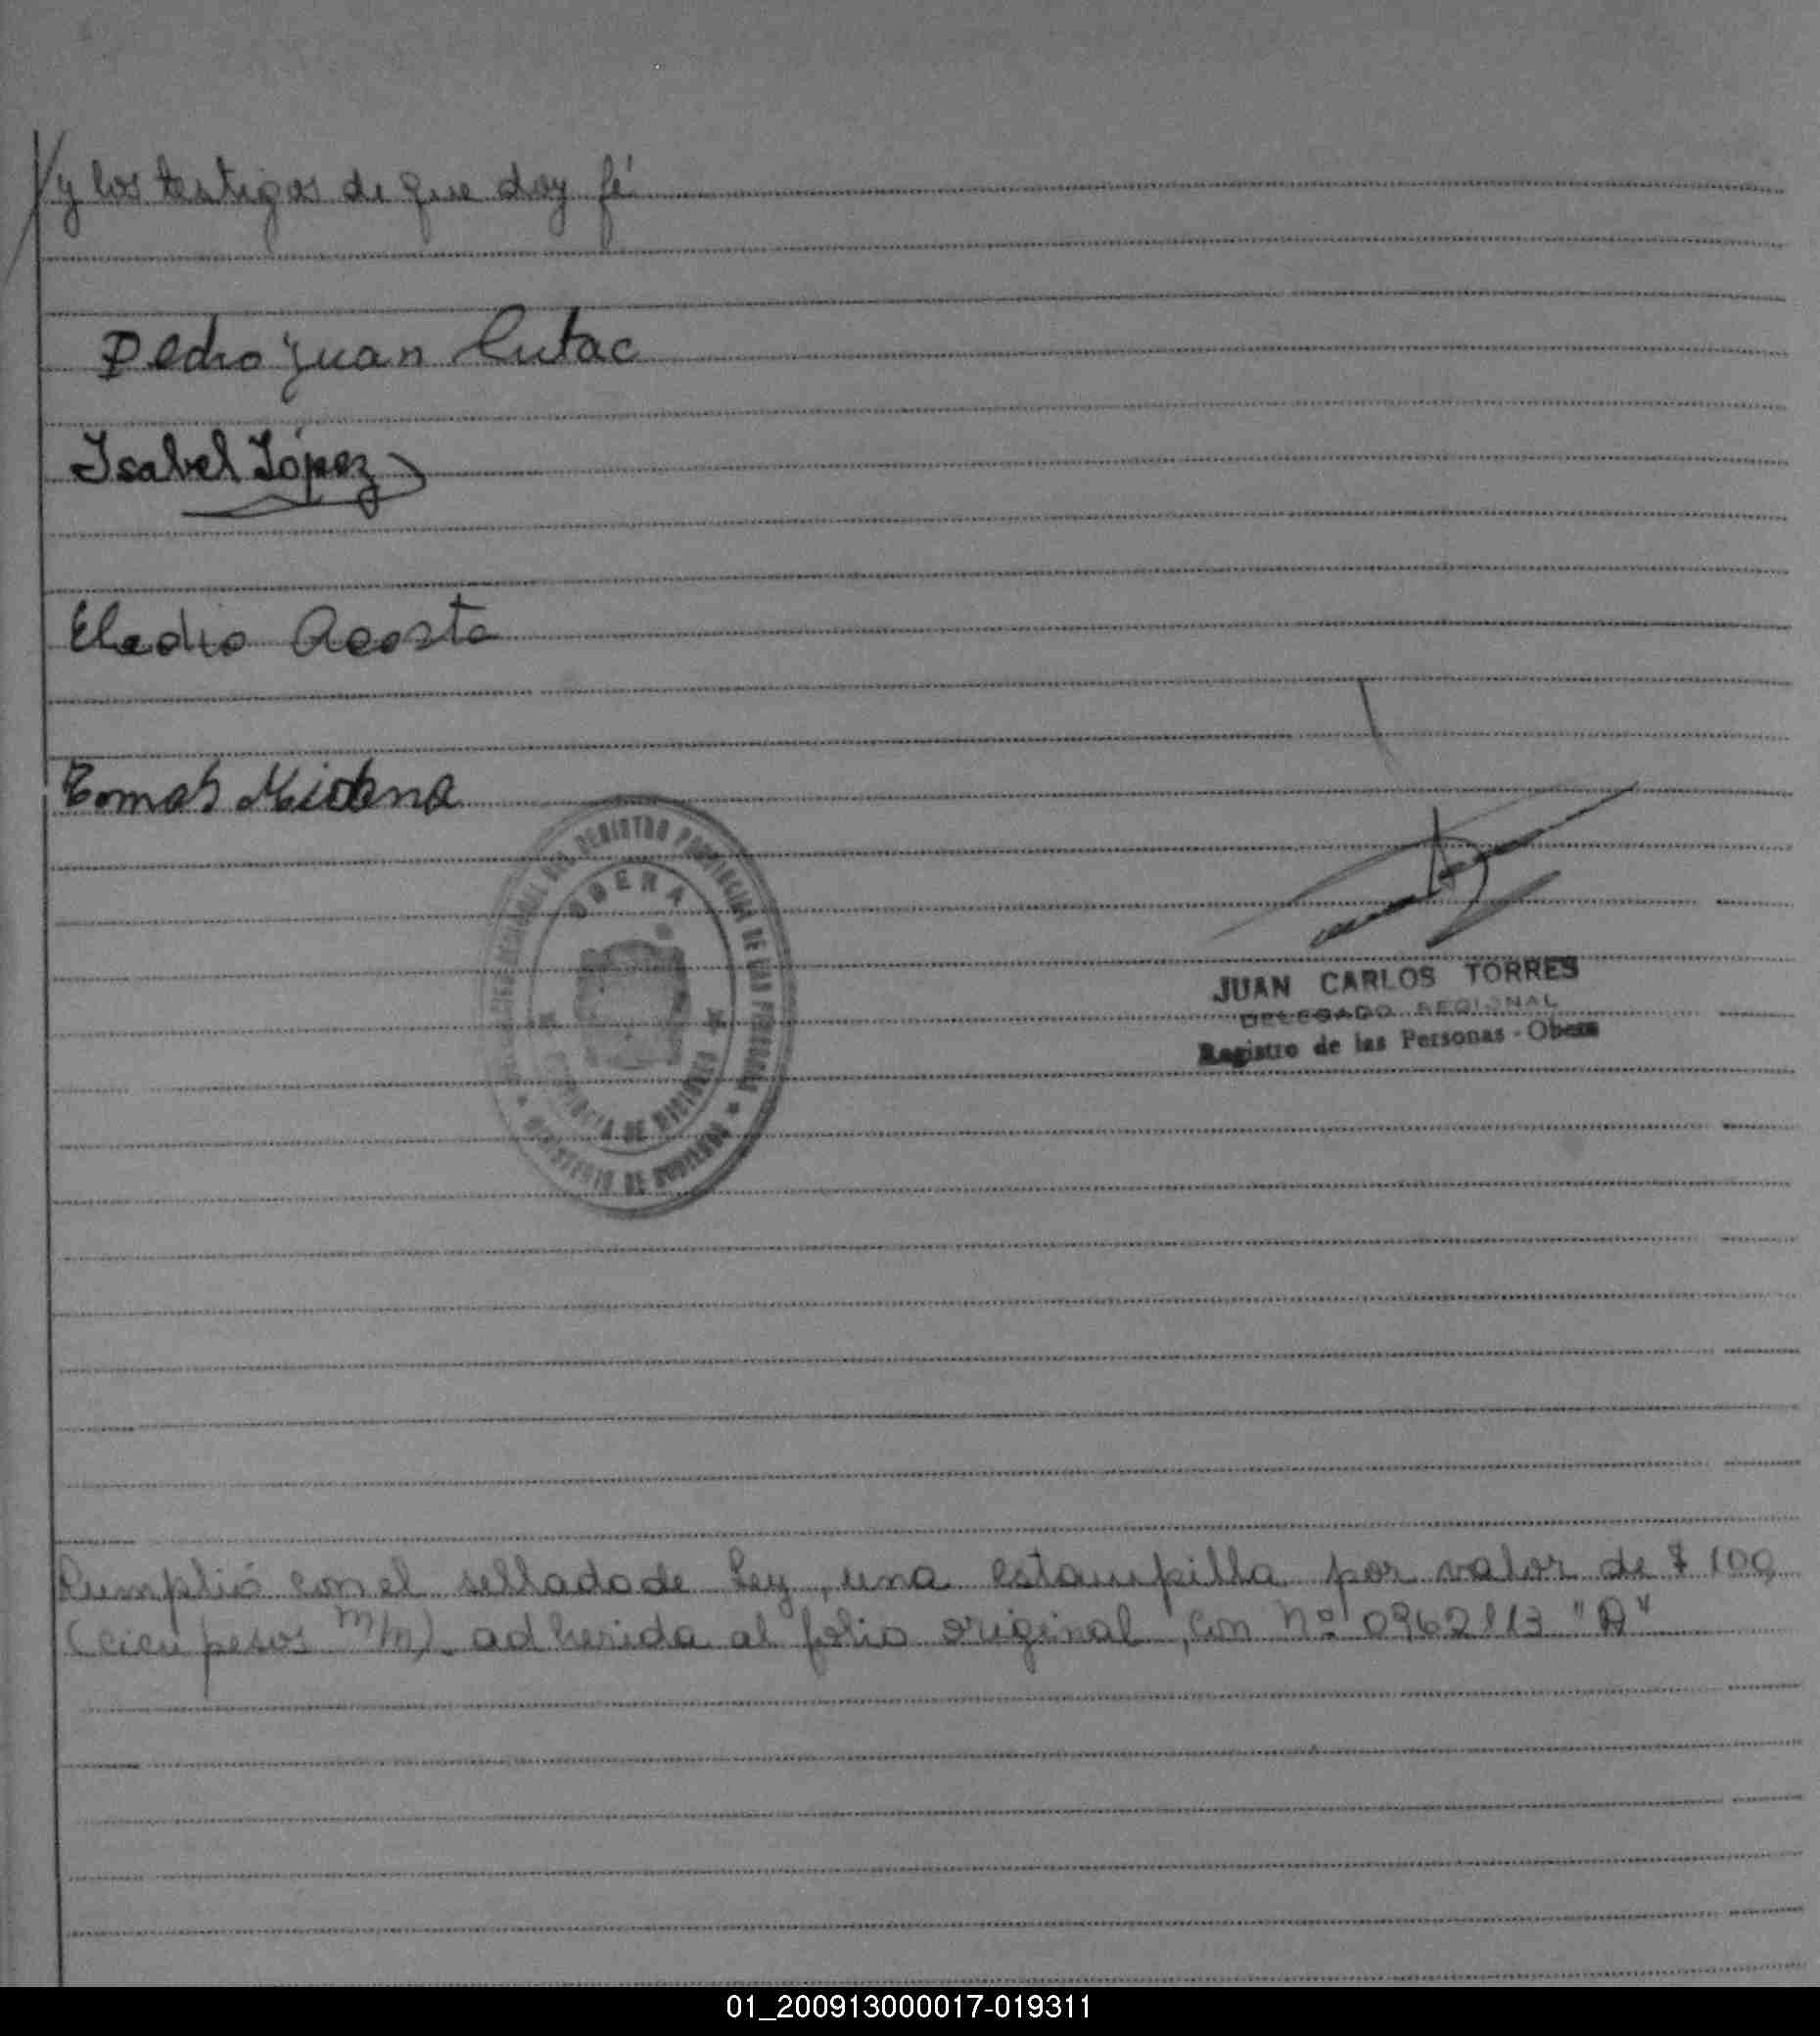 y los testigos de que doy fé
Pedro Juan Lutac
Isabel López
Eladio Acosta
Tomas
REGISTRO PROVINCIAL DE LAS PERSONAS
OBERA
PROVINCIA DE MISIONES
MINISTERIO DE GOBIERNO
JUAN CARLOS TORRES
DELEGADO REGIONAL
Registro de las Personas - Obera
Cumplió con el sellado de Ley, una estampilla por valor de $ 100
(cien pesos m/m). adherida al folio original, con Nº 0962113 "A"
01_200913000017-019311